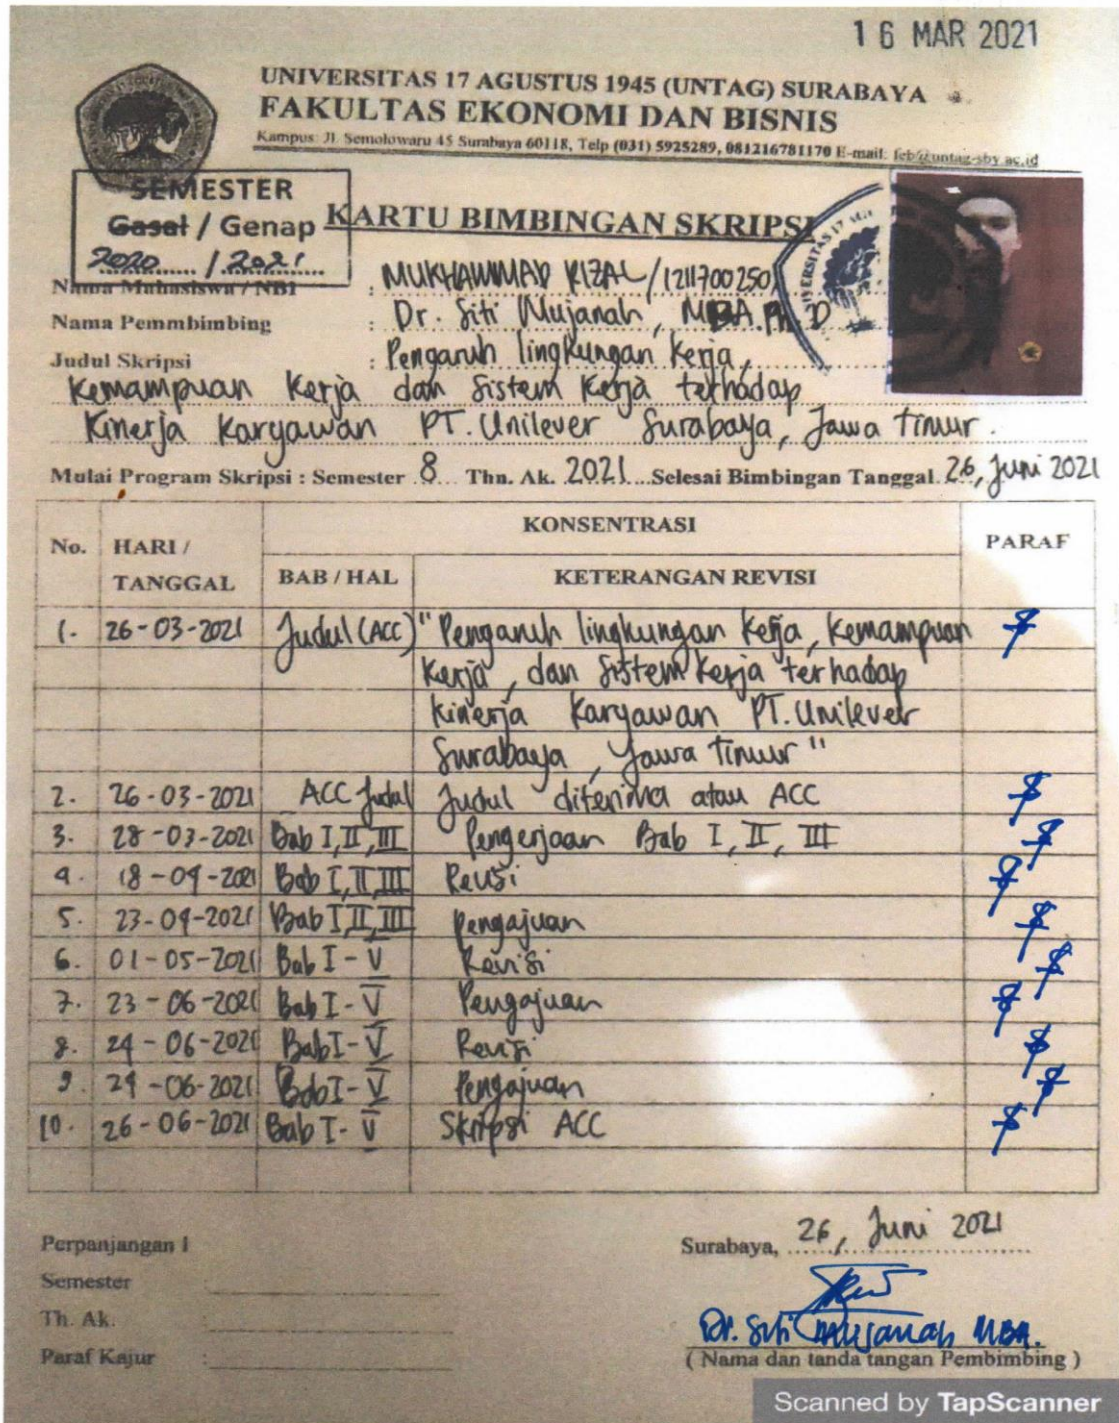 16 MAR 2021
UNIVERSITAS 17 AGUSTUS 1945 (UNTAG) SURABAYA
FAKULTAS EKONOMI DAN BISNIS
Kampus: Jl. Semolowaru 45 Surabaya 60118, Telp (031) 5925289, 081216781170 E-mail: feb@untag-sby.ac.id
SEMESTER
Gasal / Genap
2020 / 2021
KARTU BIMBINGAN SKRIPSI
Nama Mahasiswa / NBI : MUKHAMMAD RIZAL / 1211700250
Nama Pemmbimbing : Dr. Siti Mujanah, MBA. Ph. D
Judul Skripsi : Pengaruh lingkungan kerja,
Kemampuan Kerja dan Sistem Kerja terhadap
Kinerja Karyawan PT. Unilever Surabaya, Jawa Timur.
Mulai Program Skripsi : Semester 8 Thn. Ak. 2021 Selesai Bimbingan Tanggal 26, Juni 2021
No. HARI / TANGGAL KONSENTRASI PARAF
BAB / HAL KETERANGAN REVISI
1. 26-03-2021 Judul (ACC) "Pengaruh lingkungan Kerja, Kemampuan
Kerja, dan Sistem Kerja terhadap
Kinerja Karyawan PT. Unilever
Surabaya, Jawa Timur"
2. 26-03-2021 ACC Judul Judul diterima atau ACC
3. 28-03-2021 Bab I, II, III Pengerjaan Bab I, II, III
4. 18-04-2021 Bab I, II, III Revisi
5. 23-04-2021 Bab I, II, III Pengajuan
6. 01-05-2021 Bab I - V Revisi
7. 23-06-2021 Bab I - V Pengajuan
8. 24-06-2021 Bab I - V Revisi
9. 24-06-2021 Bab I - V Pengajuan
10. 26-06-2021 Bab I - V Skripsi ACC
Perpanjangan I
Semester :
Th. Ak. :
Paraf Kajur :
Surabaya, 26, Juni 2021
Dr. Siti Mujanah MBA.
( Nama dan tanda tangan Pembimbing )
Scanned by TapScanner